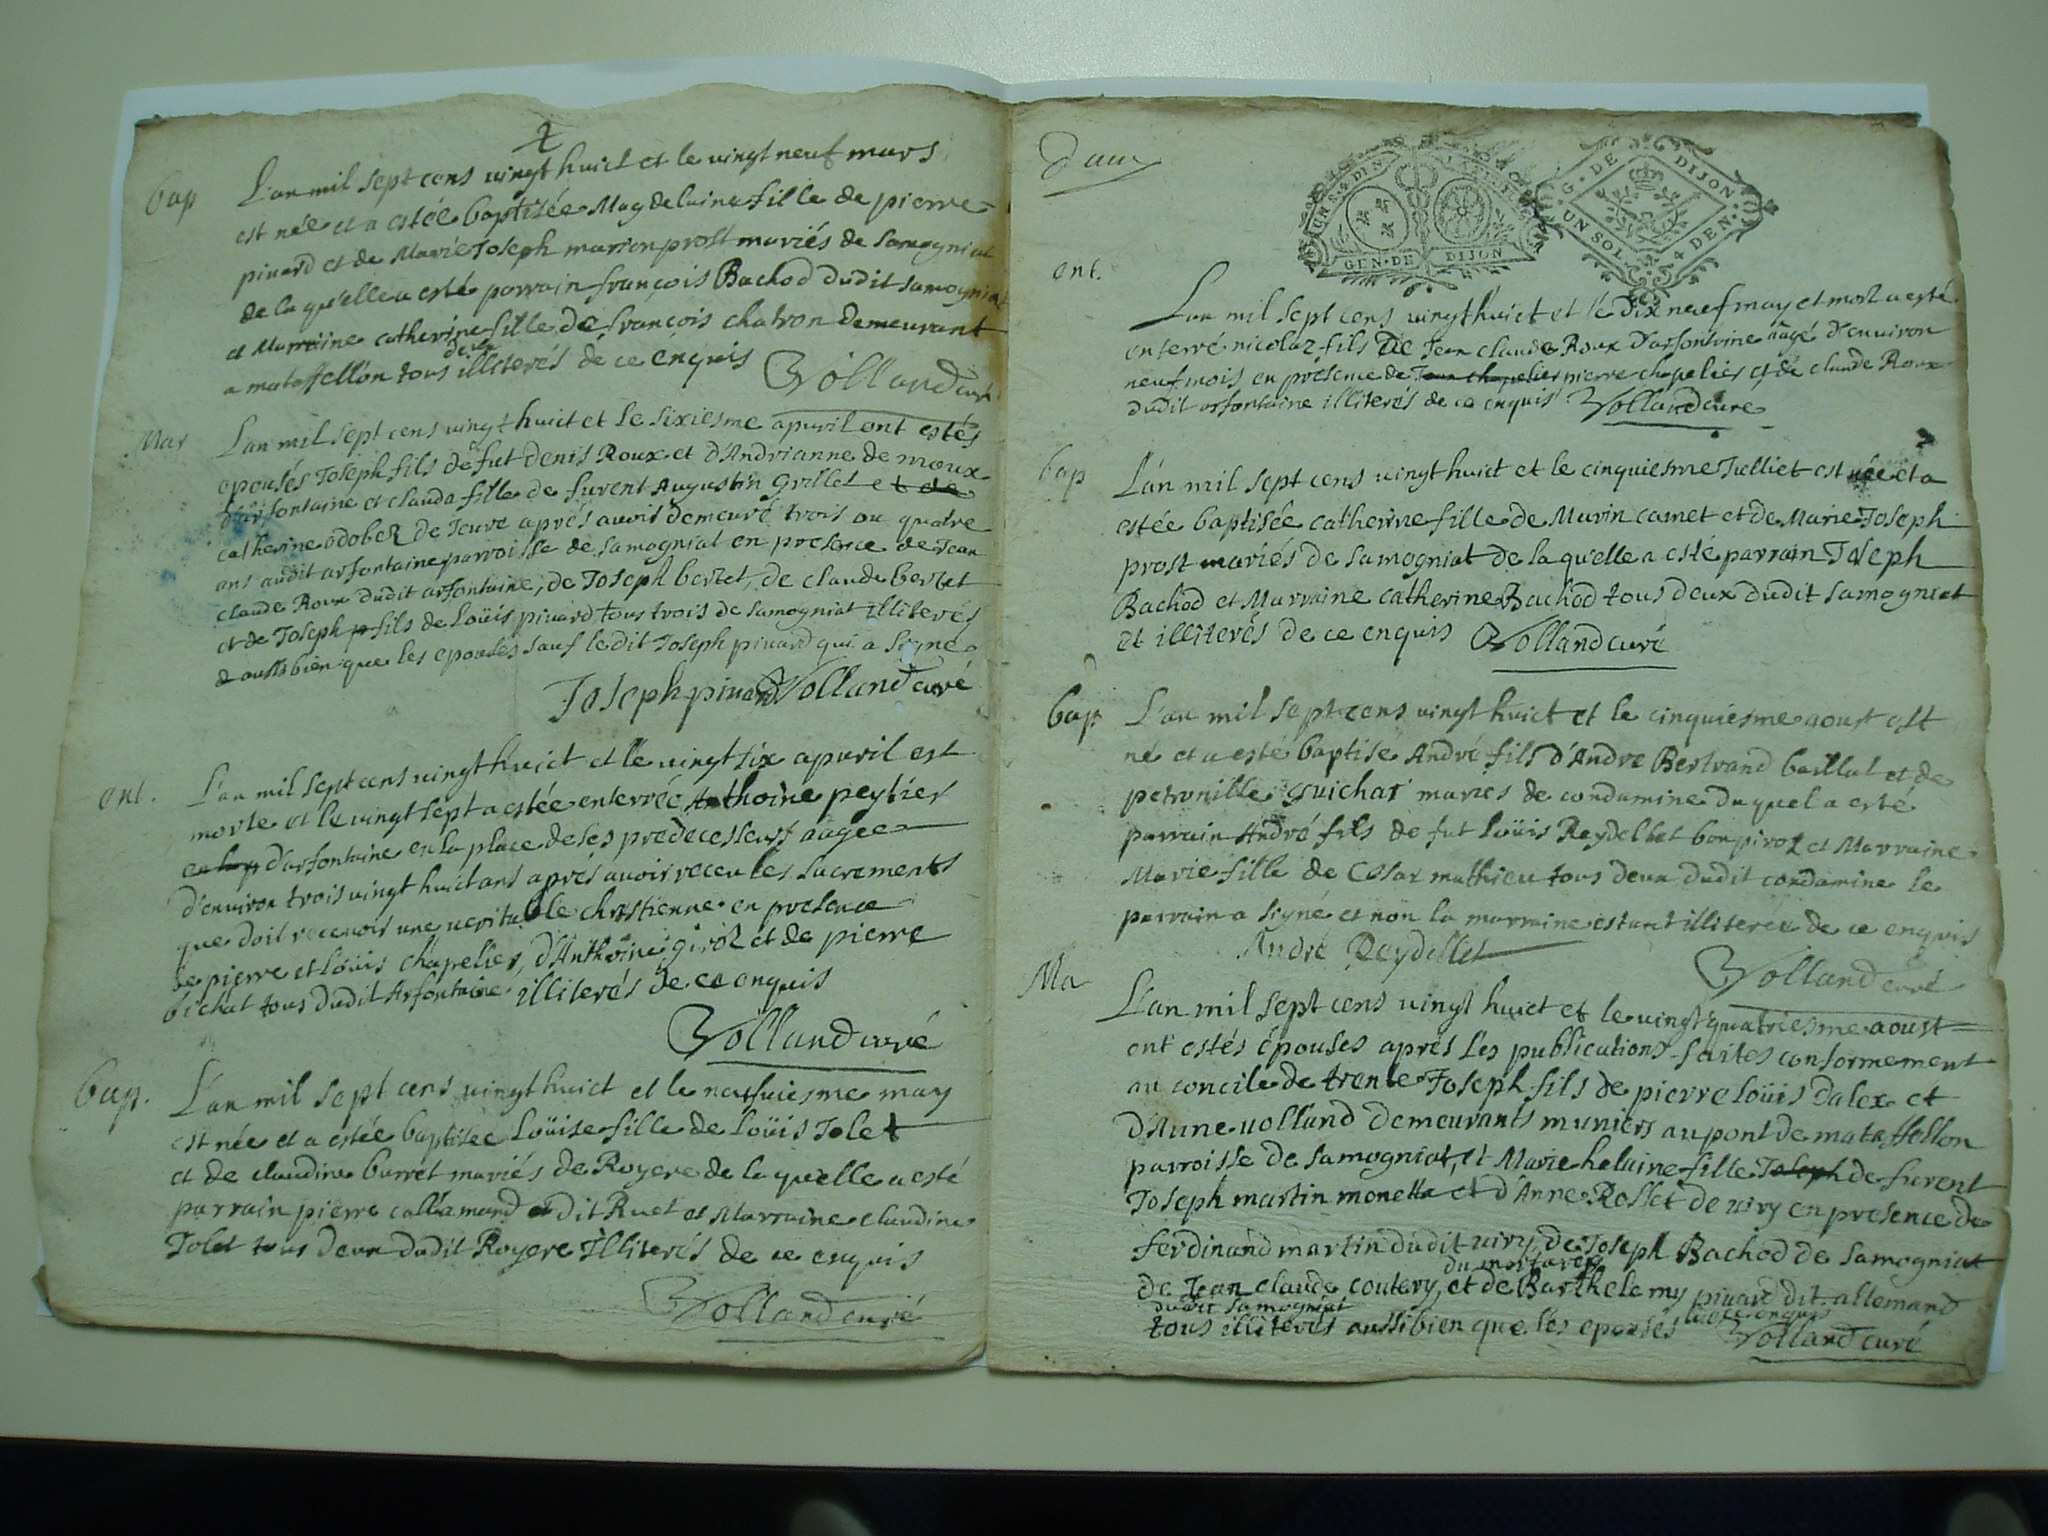 2
bap
L'an mil sept cens vingt huict et le vingt neuf mars
est née et a estée baptisée Magdelaine fille de pierre
pinard et de Marie Joseph marion prost mariés de Samogniat
de la qu'elle a esté parrain françois Bachod dudit Samogniat
et Marraine catherine fille de françois chatron demeurant
a mataffellon tous deux illiterés de ce enquis Volland curé
Mar
L'an mil sept cens vingt huict et le sixiesme apvril ont estés
epousés Joseph fils de fut Denis Roux et d'Andrianne de moux
d'arfontaine et clauda fille de furent Augustin Grillet et de
catherine odobez de Jeure aprés avoir demeuré trois ou quatre
ans audit arfontaine parroisse de Samogniat en presence de Jean
claude Roux dudit arfontaine, de Joseph bertet, de claude bertet
et de Joseph p fils de Loüis pinard tous trois de Samogniat illiterés
aussi bien que les epousés sauf le dit Joseph pinard qui a signé
Joseph pinard Volland curé
ent.
L'an mil sept cens vingt huict et le vingt six apvril est
morte et le vingt sept a estée enterrée Anthoine peytier
d'arfontaine en la place de ses predecesseurs aagée
d'environ trois vingt huict ans aprés avoir receu les sacrements
que doit recevoir une veritable chrstienne en presence
de pierre et Loüis chapelier, d'Anthoine giroz et de pierre
bichat tous dudit Arfontaine illiterés de ce enquis
Volland curé
bap.
L'an mil sept cens vingt huict et le neufviesme may
est née et a estée baptisée Loüise fille de Loüis Jolet
et de claudine burret mariés de Royere de la qu'elle a esté
parrain pierre callamand dit Ruet et Marraine claudine
Jolet tous deux dudit Royere illiterés de ce enquis
Volland curé
deux
GEN·DE DIJON
G·DE DIJON
UN SOL 4 DEN·
ent.
L'an mil sept cens vingt huict et le dix neuf may et mort a esté
enterré nicolaz fils de Jean claude Roux d'arfontaine aagé d'environ
neuf mois en présence de Jean chapelier pierre chapelier et de claude Roux
dudit arfontaine illiterés de ce enquis Volland curé
bap
L'an mil sept cens vingt huict et le cinquiesme Julliet est née et a
estée baptisée catherine fille de Marin camet et de Marie Joseph
prost mariés de Samogniat de la qu'elle a esté parrain Joseph
Bachod et Marraine catherine Bachod tous deux dudit Samogniat
et illiterés de ce enquis Volland curé
bap
L'an mil sept cens vingt huict et le cinquiesme aoust est
né et a esté baptisé André fils d'André Bertrand baillat et de
petronille guichar mariés de condamine duquel a esté
parrain André fils de fut Loüis Reydellet bonpiroz et Marraine
Marie fille de Cesar mathieu tous deux dudit condamine le
parrain a signé et non la marraine estant illiterée de ce enquis
André Reydellet
Volland curé
Ma
L'an mil sept cens vingt huict et le vingt quatriesme aoust
ont estés épousés aprés les publications faites conformement
au concile de trente Joseph fils de pierre Loüis Dalex et
d'Anne volland demeurants muniers au pont de mataffellon
parroisse de Samogniat, et Marie helaine fille Joseph de furent
Joseph martin monetta et d'Anne Rosset de viry en presence de
ferdinand martin dudit viry, de Joseph Bachod de Samogniat
du mortarey
de Jean claude coutery, et de Barthelemy pinard dit allemand
dudit Samogniat
tous illiterés aussi bien que les epousés de ce enquis Volland curé